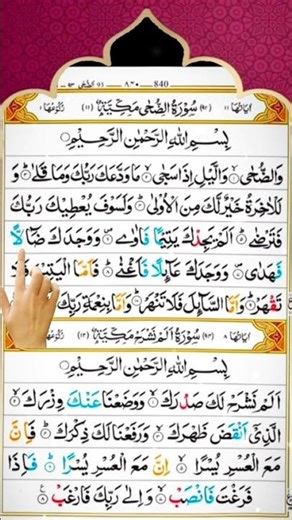 ٩٣ الضّحٰى ٩٣ ٨٣٠ 840
اٰيَاتُهَا ١١ سُوْرَةُ الضُّحٰى مَكِّيَّةٌ (٩٣) (١١) رُكُوْعُهَا ١
بِسْمِ اللّٰهِ الرَّحْمٰنِ الرَّحِيْمِ
وَالضُّحٰى ۙ وَالَّيْلِ اِذَا سَجٰى ۙ مَا وَدَّعَكَ رَبُّكَ وَمَا قَلٰى ؕ وَ
لَلْاٰخِرَةُ خَيْرٌ لَّكَ مِنَ الْاُوْلٰى ؕ وَلَسَوْفَ يُعْطِيْكَ رَبُّكَ
فَتَرْضٰى ؕ اَلَمْ يَجِدْكَ يَتِيْمًا فَاٰوٰى ۪ وَوَجَدَكَ ضَآلًّا
فَهَدٰى ۪ وَوَجَدَكَ عَآئِلًا فَاَغْنٰى ؕ فَاَمَّا الْيَتِيْمَ فَلَا
تَقْهَرْ ؕ وَاَمَّا السَّآئِلَ فَلَا تَنْهَرْ ؕ وَاَمَّا بِنِعْمَةِ رَبِّكَ
اٰيَاتُهَا ٨ سُوْرَةُ اَلَمْ نَشْرَحْ مَكِّيَّةٌ (٩٤) (١٢) رُكُوْعُهَا
بِسْمِ اللّٰهِ الرَّحْمٰنِ الرَّحِيْمِ
اَلَمْ نَشْرَحْ لَكَ صَدْرَكَ ۙ وَوَضَعْنَا عَنْكَ وِزْرَكَ ۙ
الَّذِيْۤ اَنْقَضَ ظَهْرَكَ ۙ وَرَفَعْنَا لَكَ ذِكْرَكَ ؕ فَاِنَّ
مَعَ الْعُسْرِ يُسْرًا ۙ اِنَّ مَعَ الْعُسْرِ يُسْرًا ؕ فَاِذَا
فَرَغْتَ فَانْصَبْ ۙ وَاِلٰى رَبِّكَ فَارْغَبْ